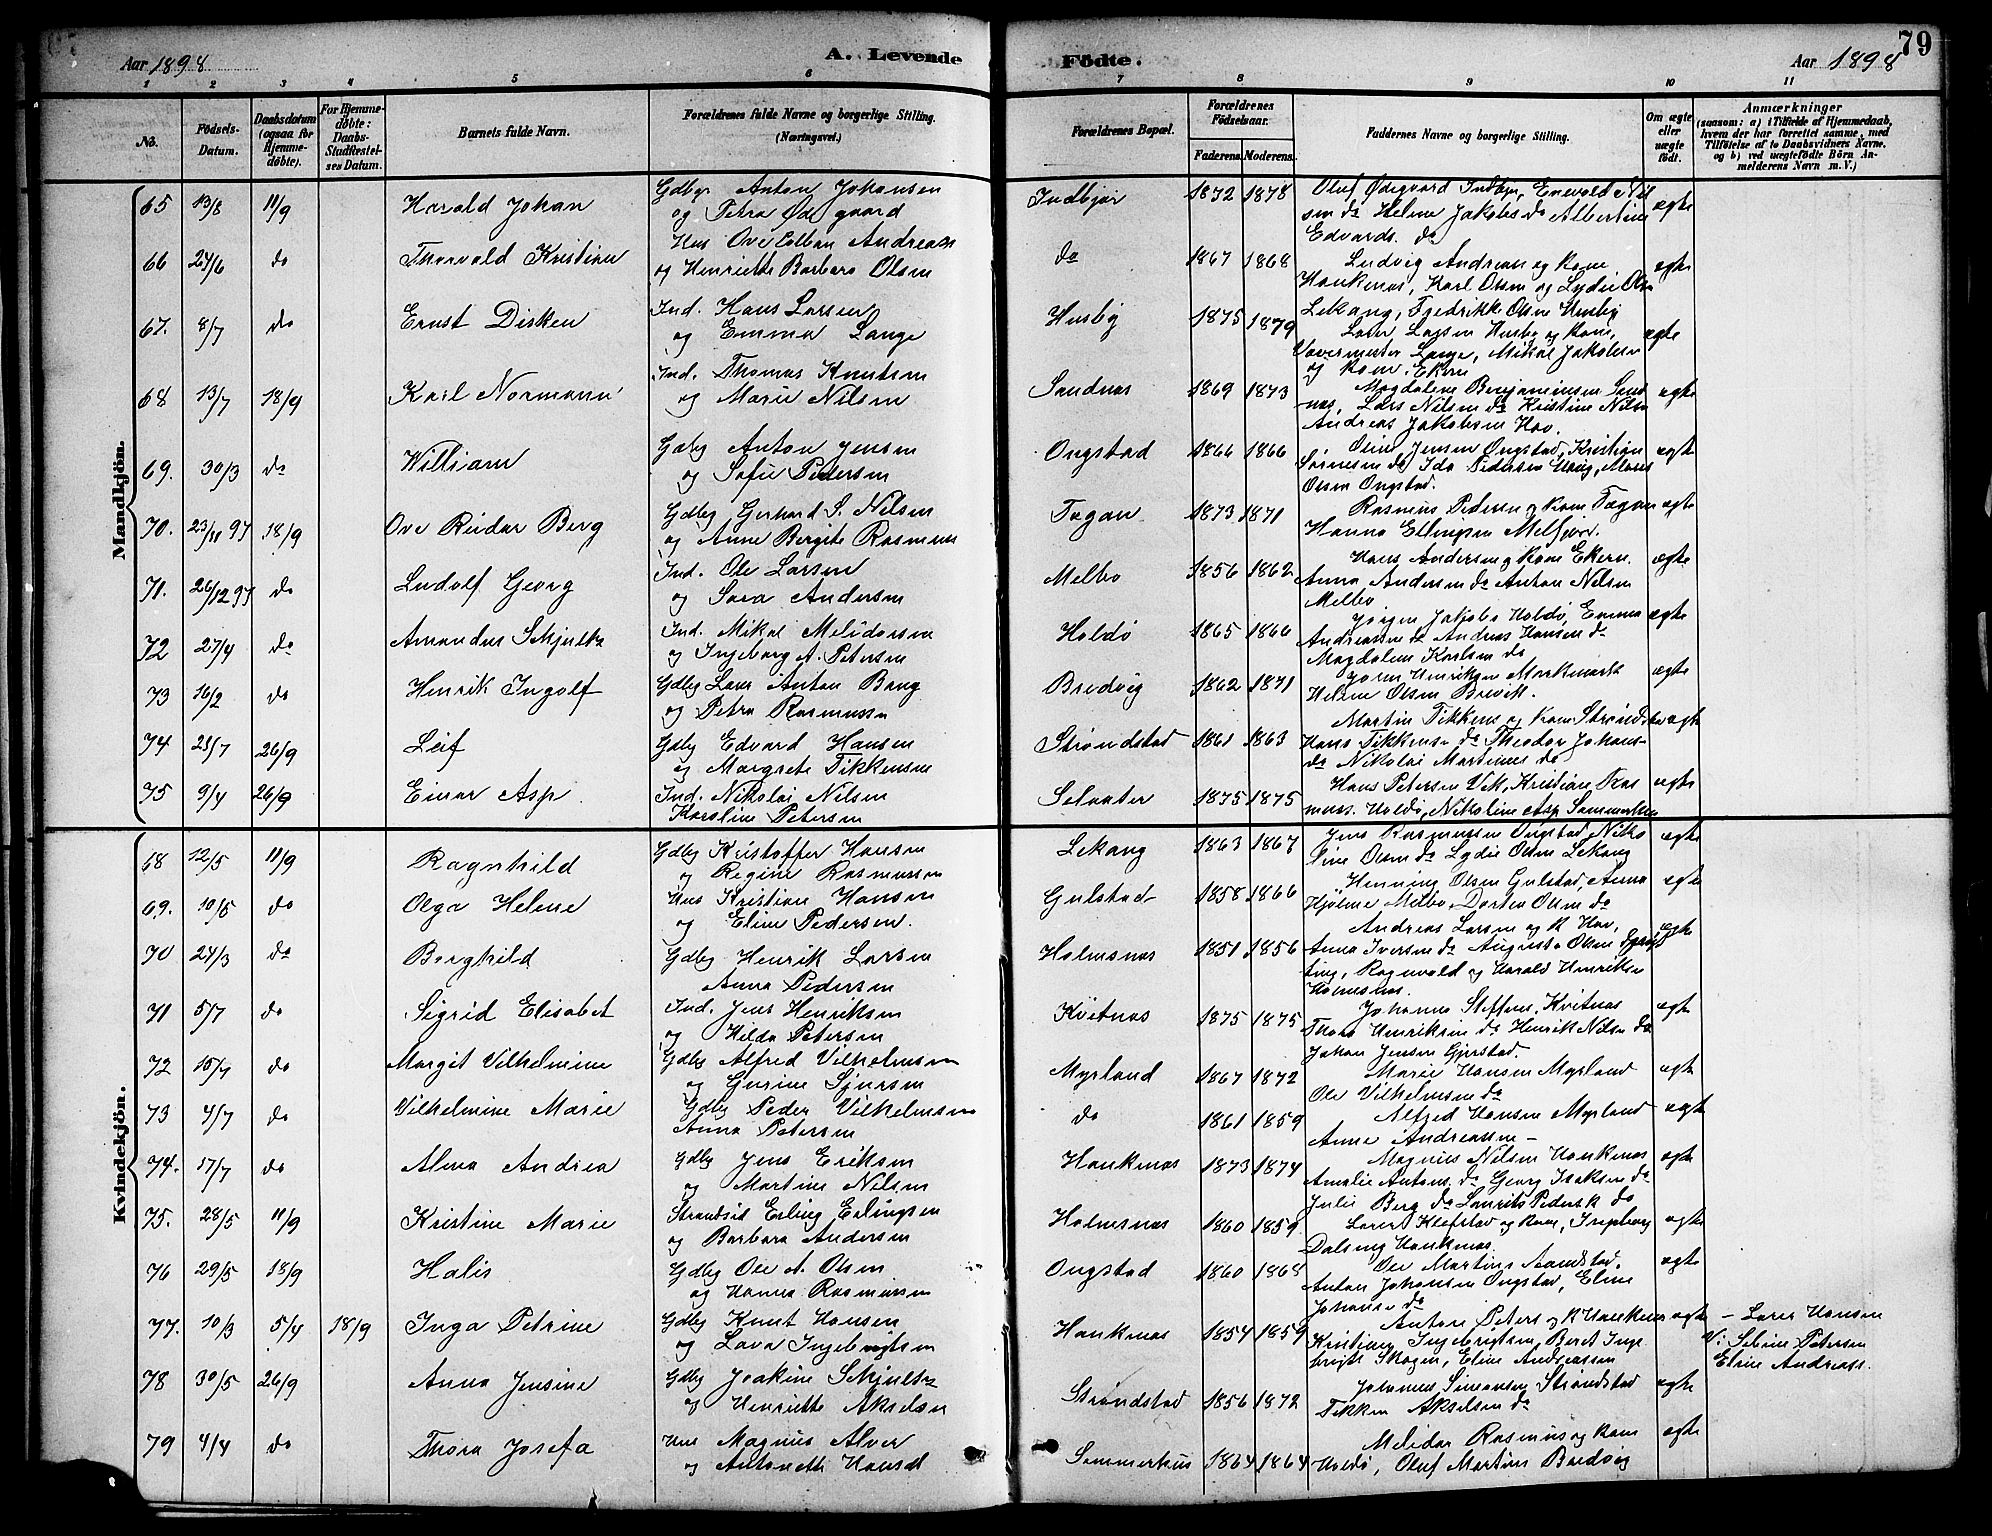 Aar 1898
A. Levende Födte.
Aar 1898
79
1 2 3 4 5 6 7 8 9 10 11
No.
Födsels-Datum.
Daabsdatum (ogsaa for Hjemme-døbte).
For Hjemme-døbte: Daabs-Stadfæstel-ses Datum.
Barnets fulde Navn.
Forældrenes fulde Navne og borgerlige Stilling. (Næringsvei.)
Forældrenes Bopæl.
Forældrenes Födselsaar.
Faderens. Moderens.
Faddernes Navne og borgerlige Stilling.
Om ægte eller uægte født.
Anmærkninger
(saasom: a) i Tilfælde af Hjemmedaab, hvem der har forrettet samme, med Tilföielse af to Daabsvidners Navne. og b) ved uægtefödte Börn An-melderens Navn m. V.)
Mandkjön.
65 13/8 11/9 Harald Johan Gdbgr Anton Johansen Indbjør 1872 1878 Oluf Ødegaard Indbjør, Enevold Nil ægte
og Petra Ødegaard sen do Helene Jakobs do Albertine
Edvards. do
66 24/6 do Thorvald Kristian Hus Ove Edban Andreas do 1867 1868 Ludvig Andreas og kone ægte
og Henriette Barbara Olsen Hauknes, Karl Olsen og Lydie Olsn
67. 8/7 do Ernst Disken Ind. Hans Larsen Husby 1875 1879 Lekang, Fredrikke Olsen Husby ægte
og Emma Lange Lars Larsen Husby og kone,
Vævermester Lange, Mikal Jakobsen
og kone. Ekern
68 13/7 18/9 Karl Normann Ind. Thomas Knutsen Sandnas 1869 1873 Magdalene Benjaminsen Sand ægte
og Marie Nilsen nas, Lars Nilsen do Kristine Nilsn
Andreas Jakobsen Hov.
69. 30/3 do William Gdbg Anton Jensen Ongstad 1866 1866 Oline Jensen Ongstad, Kristian ægte
og Sofie Pedersen Sørnesen do Ida Pedersen Haug, Mons
Olsen Ongstad.
70. 23/11 97 18/9 Ove Reidar Berg Gdbg Gerhard S. Nilsen Fagan 1873 1871 Rasmus Pedersen og kone Fagan ægte
og Anne Bergite Rasmuss Hanna Ellingsen Melfjor.
71. 26/12 97 do Ludolf Georg Ind. Ole Larsen Melbo 1856 1862 Hans Andersen og kone Ekern. ægte
og Sara Andersen Anna Andersen do Anton Nilsen
Melbo
72 27/4 do Amandus Schjults Ind. Mikal Melidorsen Holdø 1865 1866 Jørgen Jakobs Holdø, Emma ægte
og Ingeborg A. Petersen Andreassen do Andreas Hansen do
Magdalene Karlsen do
73 16/2 do Henrik Ingolf Gdbg Lars Anton Bang Bredvig 1862 1871 Joren Henriksen Morkmark ægte
og Petra Rasmussn Helene Olsen Brevik.
74 23/7 26/9 Leif Gdbg Edvard Hansen Strøndstad 1861 1863 Martin Tikkens og kone Strøndsta ægte
og Margrete Tikkensen Hans Tikkensen do Theodor Johans-
do Nikolai Martines do
75 9/4 26/9 Einar Asp. Ind. Nikolai Nilsen Selaater 1875 1875 Hans Petersen Vik, Kristiane Ras ægte
Karoline Petersen muss. Holdø, Nikoline Asp Sommerhus
Kvindekjön.
68 12/5 11/9 Ragnhild Gdbg Kristoffer Hansen Lekang 1863 1867 Jens Rasmussen Ongstad, Niko ægte
og Regine Rasmussen line Olsen do Lydie Olsen Lekang
69. 10/5 do Olga Helene Hus Kristian Hansen Gulstad 1858 1866 Henning Olsen Gulstad, Anna ægte
og Eline Pedersen. Hjelme Melbo, Dortea Olsen do
70 24/3 do Borghild Gdbg Henrik Larsen Holmsnas 1851 1856 Andreas Larsen og K Hov, ægte
Anna Pedersen Anna Iversen do Augusta Olsen
ting, Ragnvald og Harald Henriksen
Holmsnas.
71 5/7 do Sigrid Elisabet Ind. Jens Henriksen Kvitnas 1875 1875 Johanna Steffens, Kvitnas ægte
og Hilda Petersen Thora Henriksen do Henrik Nilsen do
Johan Jensen Gjerstad.
72 10/7 do Margit Vilhelmine Gdbg Alfred Vilhelmsen Myrland 1867 1872 Marie Hansen Myrland ægte
og Gurine Sjursen Ole Vilhelmsen do
73 4/7 do Vilhelmine Marie Gdbg Peder Vilhelmsen do 1861 1859 Alfred Hansen Myrland ægte
Anna Petersen Anne Andreassen –
74. 17/7 do Alma Andrea Gdbg Jens Eriksen Hauknas 1873 1874 Magnus Nilsen Hauknas ægte
og Martine Nilsen Amalie Antons. do Georg Isaksen do
Julie Berg do Laurits Peders K do
75. 28/5 11/9 Kristine Marie Strandsid Erling Erlingsen Holmsnas 1860 1859 Lorents Klefstad og kone, Ingeborg ægte
og Barbara Andersen Dalsing Hauknas.
76 29/5 18/9 Halis Gdbg Ole A. Olsen Ongstad 1860 1868 Ole Martins Sandstad. ægte
og Hanna Rasmussen Anton Johansen Ongstad, Eline
Johansen do
77. 10/3 5/4 18/9 Inga Petrine Gdbg Knut Hansen Hauknas 1854 1859 Anton Peters og K Hauknes ægte – Lorer Hansen
og Lava Ingebrigtsen Kristiane Ingebrigtsen, Beret Inge V: Seline Petersen
brigts Skogen, Eline Andreassen Eline Andreass.
78 30/5 26/9 Anna Jensine Gdbg Joakim Schjults Strøndstad 1856 1872 Johannes Simonsen Strøndstad ægte
og Henriette Akselsn Tikken Akselsen do
79 4/4 do Thora Josefa Hus Magnus Alver Sommerhus 1864 1864 Melidor Rasmus og kone ægte
og Antonette Hansd Holdø, Oluf Martins Bredvig